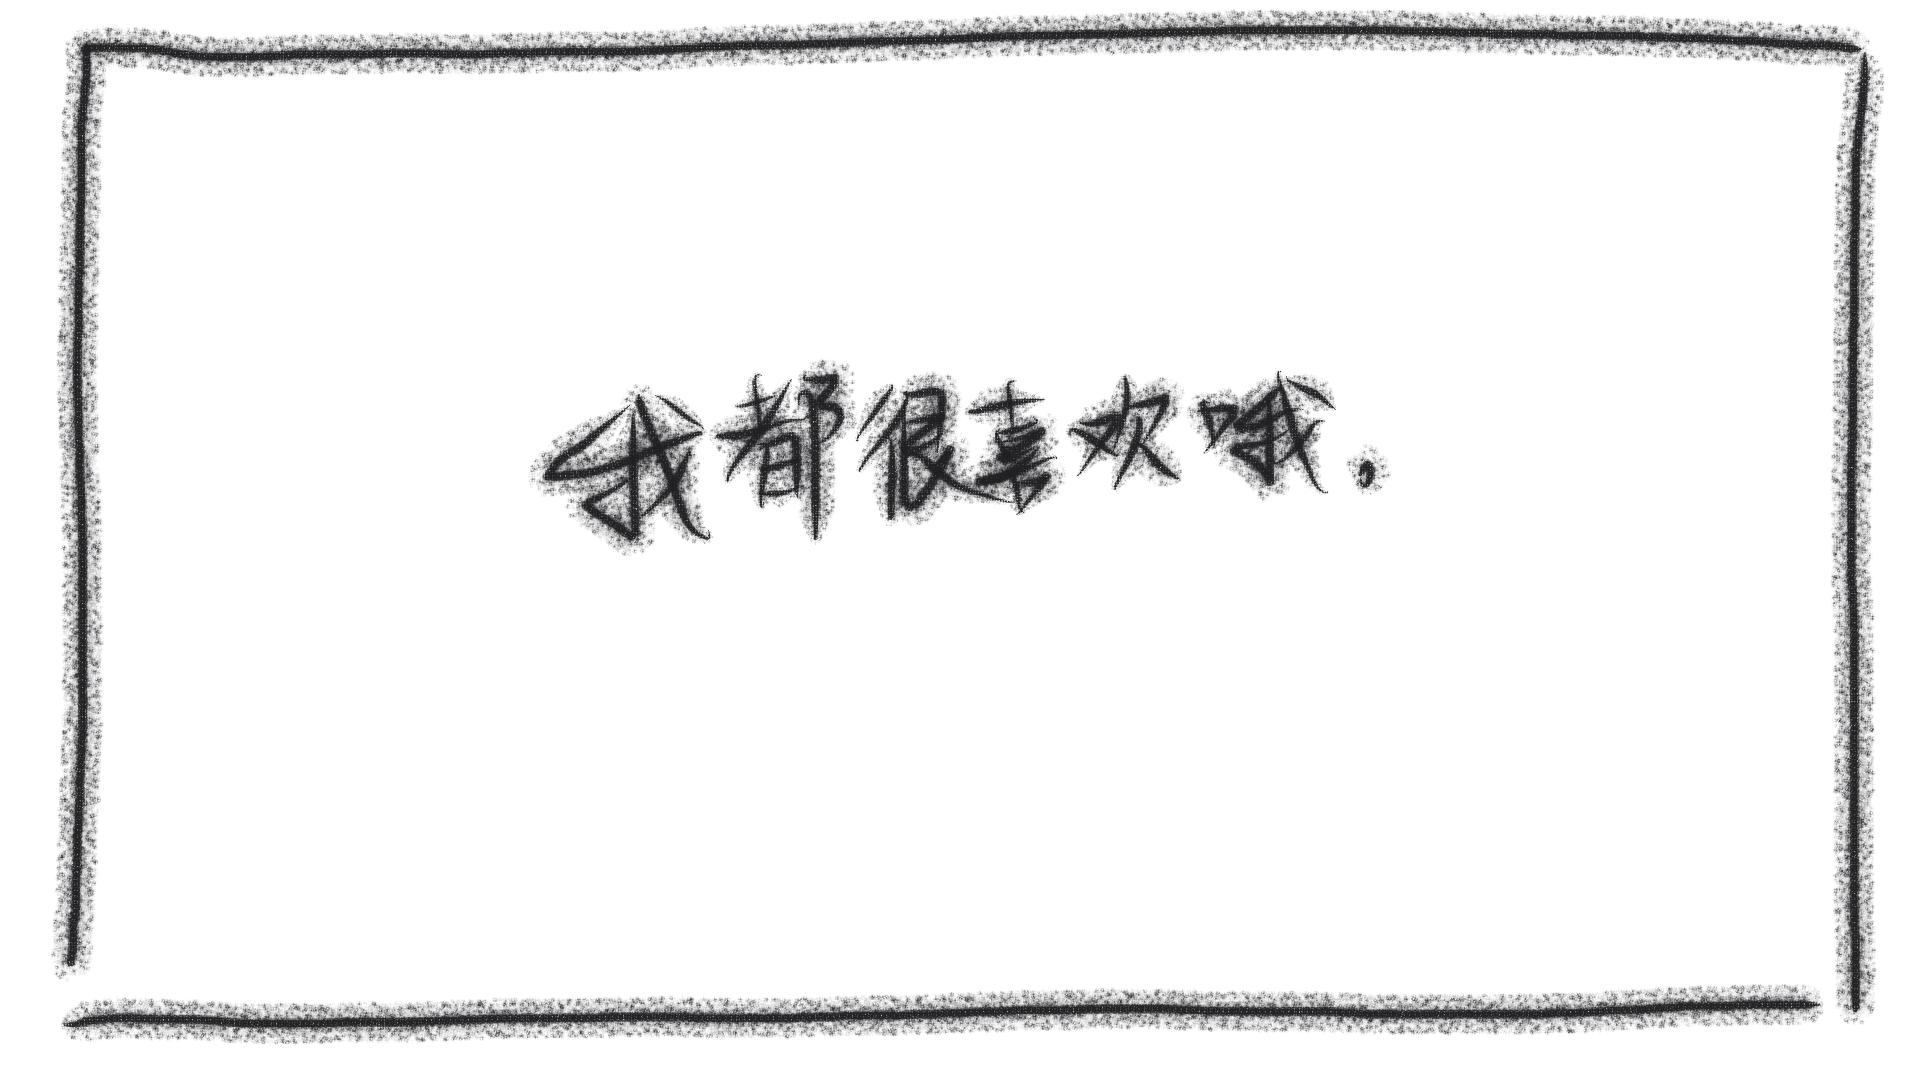 我都很喜欢哦，